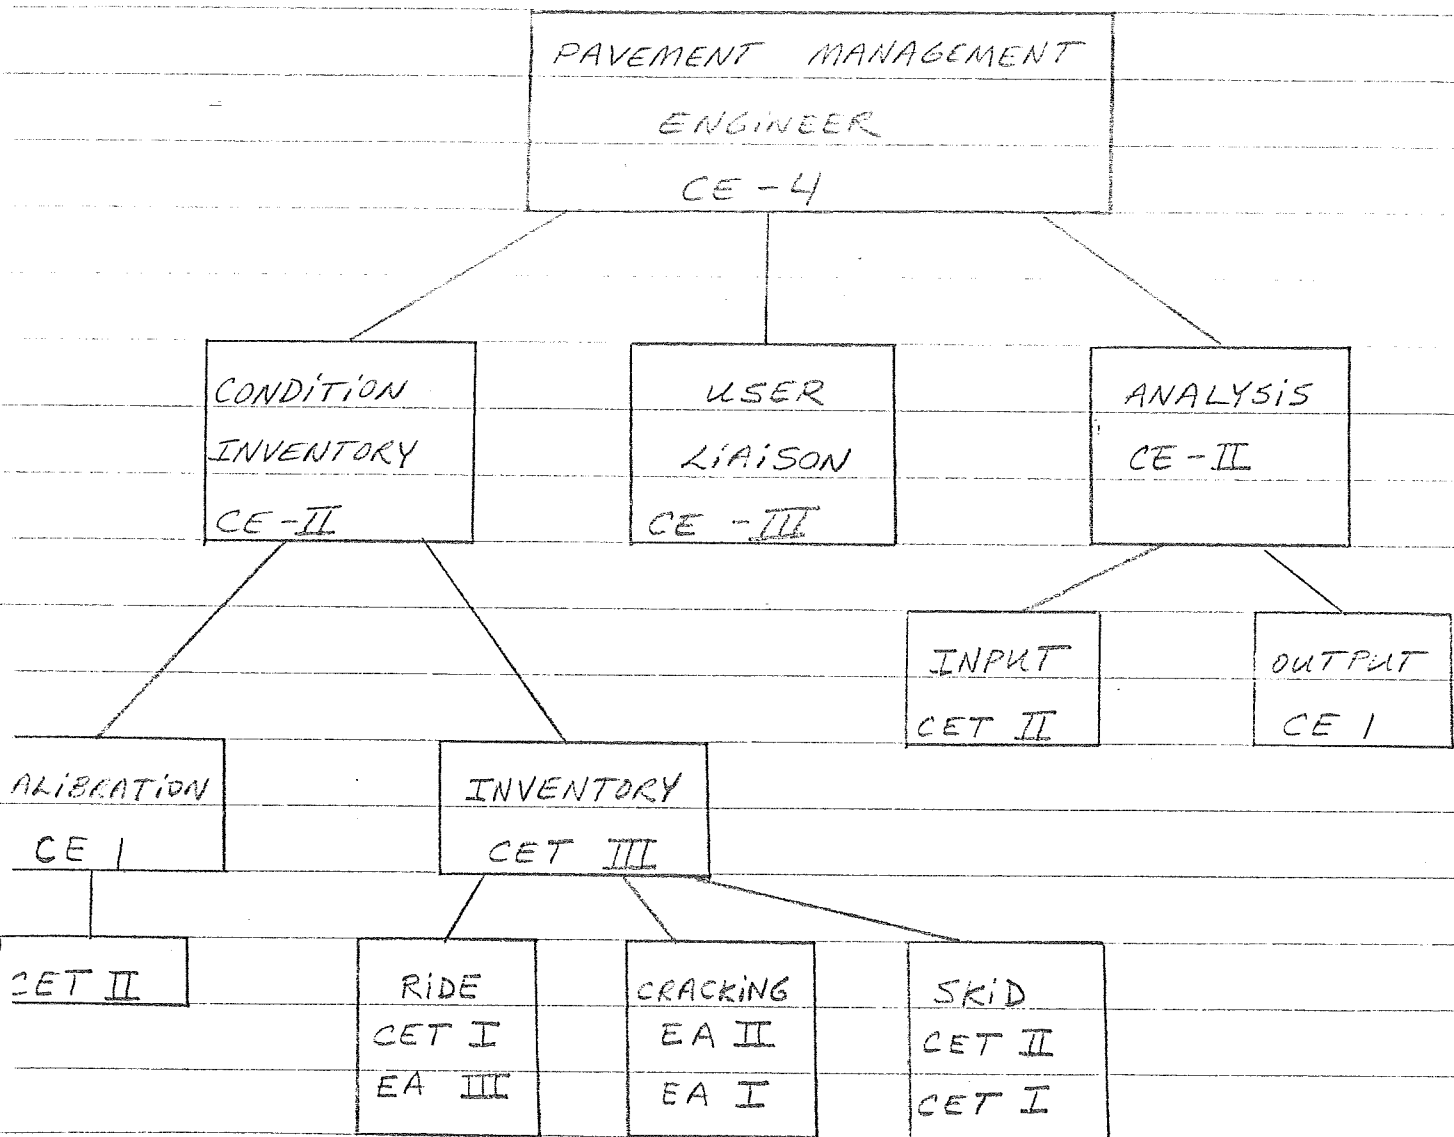 PAVEMENT MANAGEMENT
ENGINEER
CE-4
CONDITION
INVENTORY
CE-II
USER
LIAISON
CE-III
ANALYSIS
CE-II
INPUT
CET II
OUTPUT
CE 1
ALIBRATION
CE 1
INVENTORY
CET III
CET II
RIDE
CET I
EA III
CRACKING
EA II
EA I
SKID
CET II
CET I